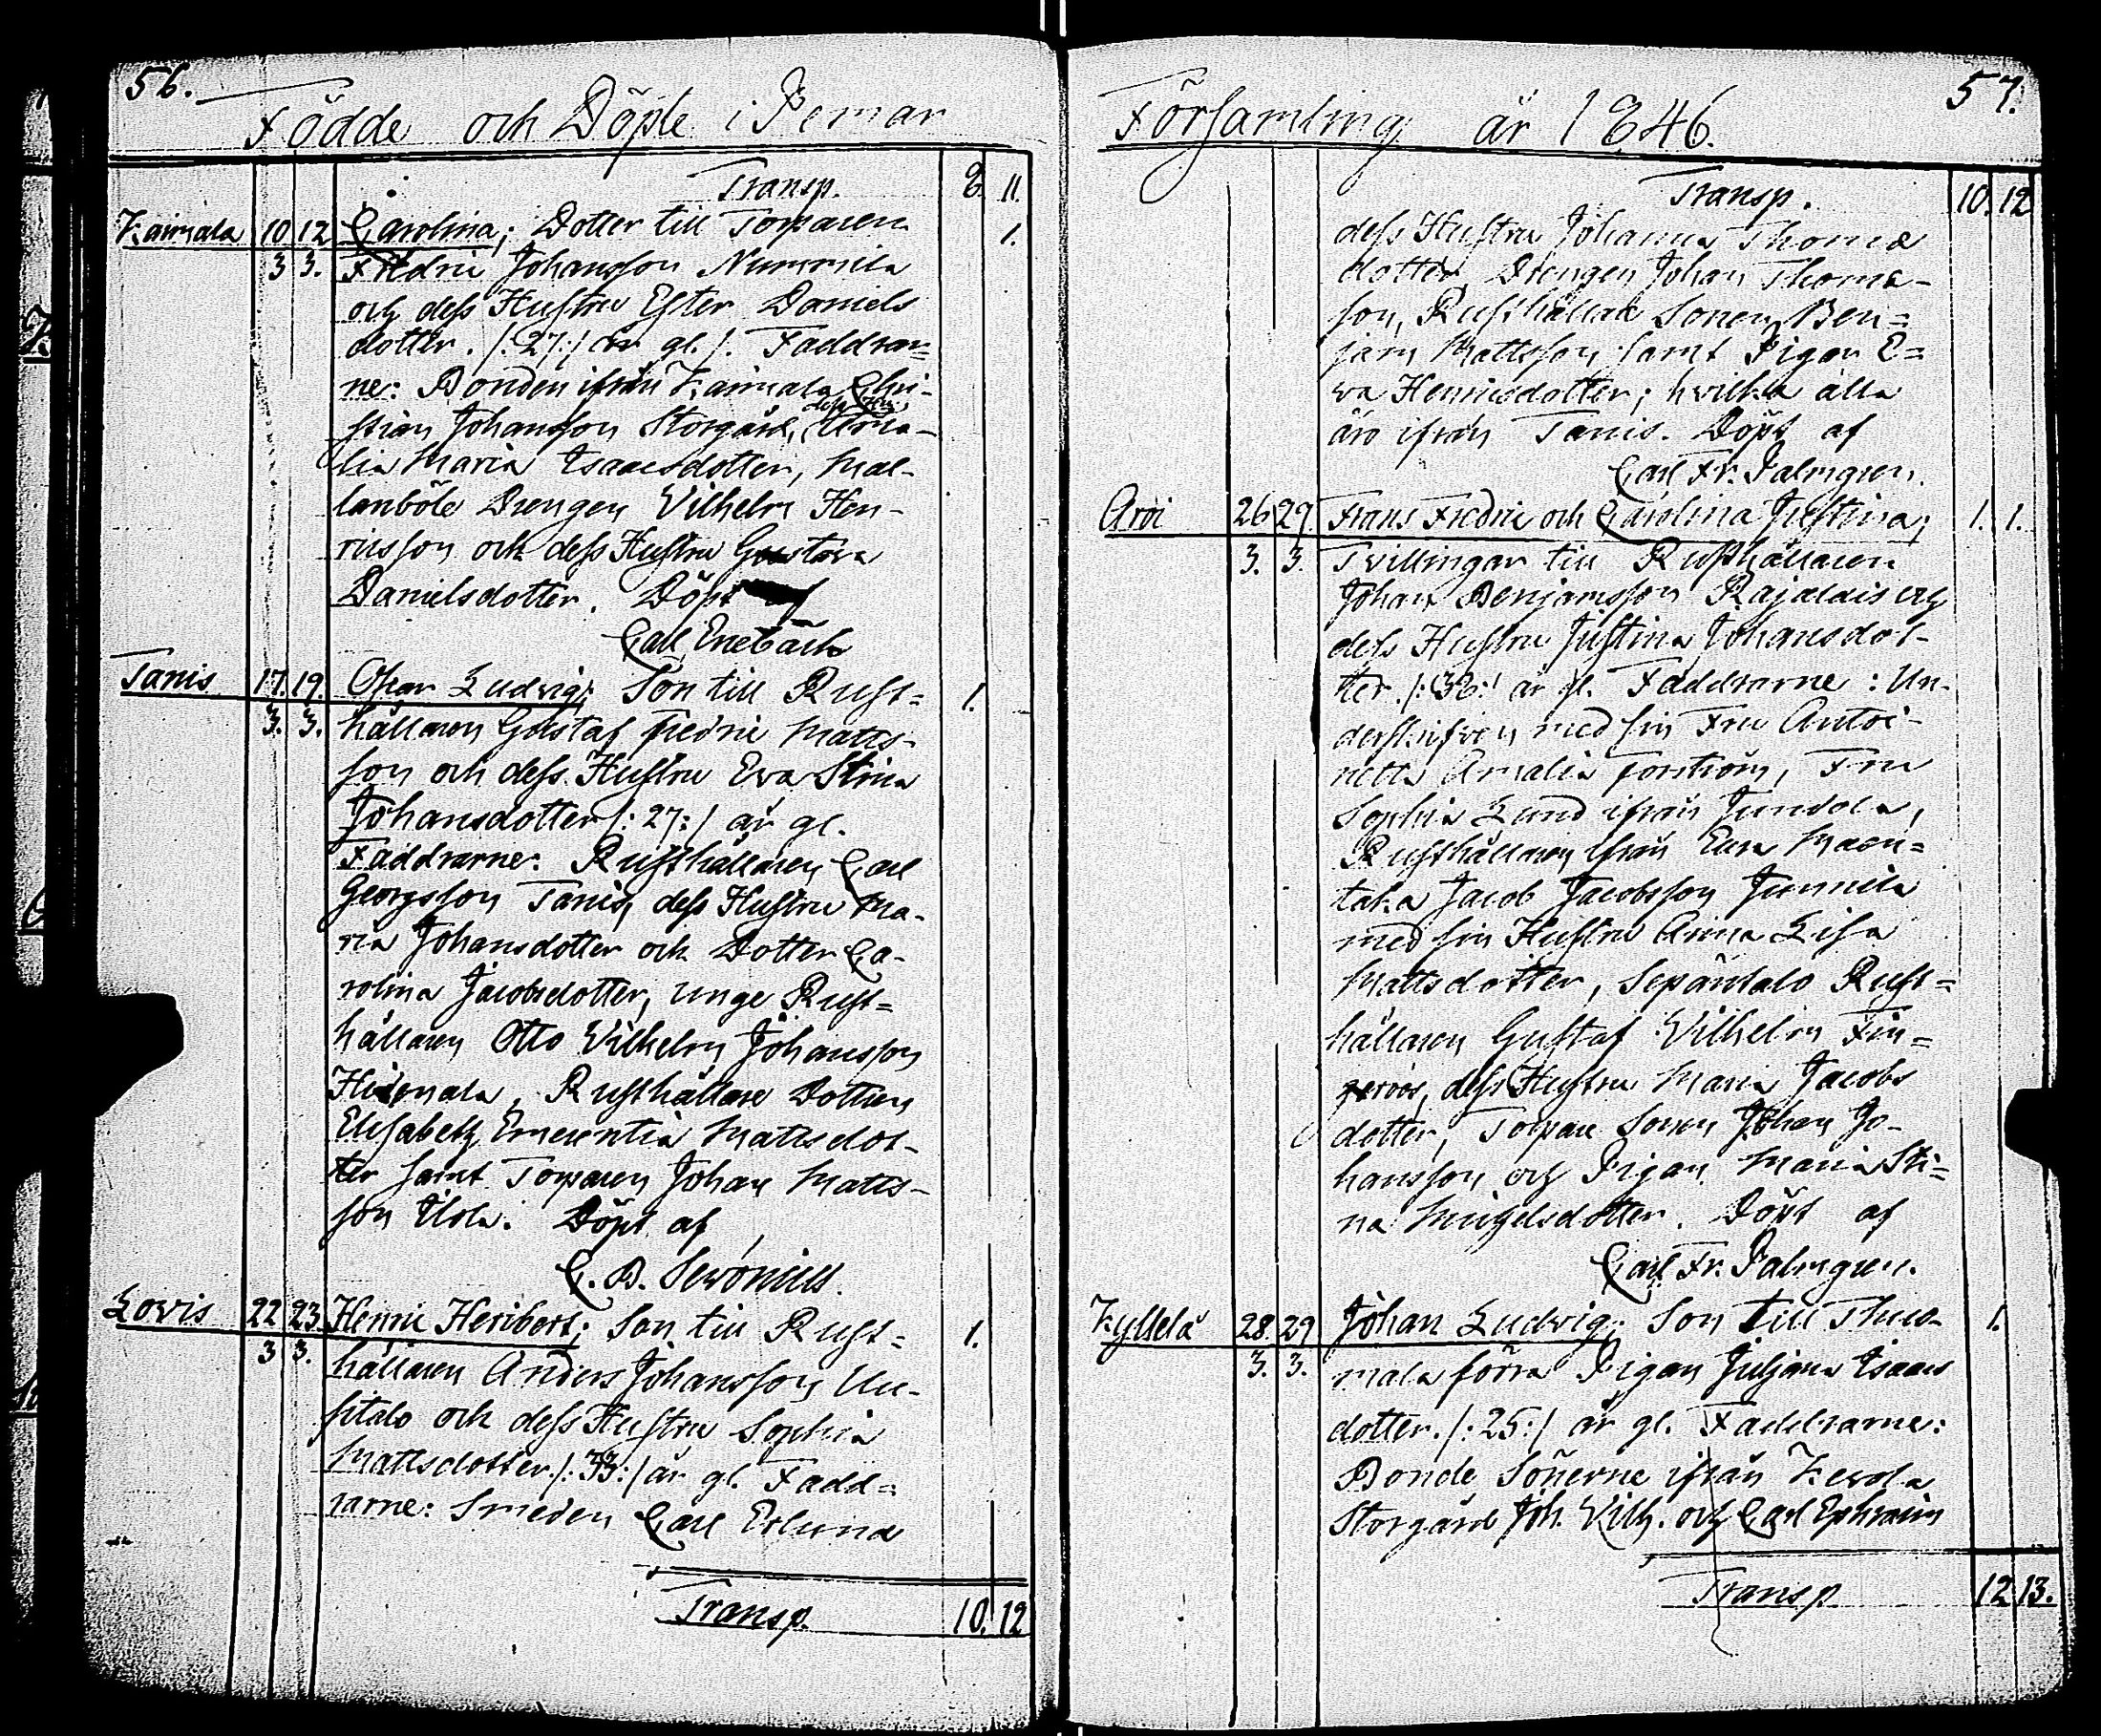 56.
Födde och Döpte i Pemar
Transp. 8. 11.
10 12 Carolina; Dotter till Torparen 1.
3 3. Fredric Johansson Nummila
och dess Hustru Ester Daniels
dotter. /: 27:/ år gl. /. Faddrar=
ne: Bonden ifrån Chri-
stian Johansson Storgård, dess Hu:
lia Maria Isaacsdotter, Mal-
lenböle Drengen Vilhelm Hen-
ricsson och dess Hustru Gustava
Danielsdotter. Döpt af
Carl Enebäck
Tanis 17. 19. Oskar Ludvig; Son till Rust= 1.
3. 3. hållaren Gustaf Fredric Matts-
son och dess Hustru Eva Stina
Johansdotter /: 27:/ år gl.
Faddrarne: Rusthållaren Carl
Georgsson Tanis, dess Hustru Ma-
ria Johansdotter och Dotter Ca-
rolina Jacobsdotter, unge Rust=
hållaren Otto Vilhelm Johansson
Rusthållare Dottren
Elisabeth Emerentia Mattsdot-
ter samt Torparen Johan Matts-
son Döpt af
C. D.
Lovis 22 23. Henric Heribert; Son till Rust= 1.
3 3. hållaren Anders Johansson Uu-
sitalo och dess Hustru Sophia
Mattsdotter /: 33:/ år gl. Fadd=
rarne: Smeden Carl Erlund
Transp. 10. 12
57.
Församling år 1846.
Transp. 10. 12
dess Hustru Johanna Thomæ
dotter Drengen Johan Thomæ-
son, Rusthållare Sonen Ben=
jam Mattsson samt Pigan E=
va Henricsdotter; hvilka alla
äro ifrån Tanis. Döpt af
Carl Fr. Palmgren.
Arvi 26 29. Frans Fredric och Carolina Justina; 1. 1.
3. 3. Tvillingar till Rusthållaren
Johan Benjamsson och
dess Hustru Justina Johansdot-
ter. /: 38:/ år gl. Faddrarne: Un-
derskrifven med sin Fru Antoi-
netta Amalia Forström, Fru
Sophia Lund ifrån Junvola,
Rusthållaren ifrån
Jacob Jacobsson Junnila
med sin Hustru Anna Lisa
Mattsdotter, Sepänsalo Rust=
hållaren Gustaf Vilhelm Fin=
geroos, dess Hustru Maria Jacobs
dotter, Torpare Sonen Johan Jo-
hansson och Pigan Maria Sti=
na Michelsdotter. Döpt af
Carl Fr. Palmgren.
28. 29 Johan Ludvig; Son till 1.
3. 3. mala förra Pigan Juliana Isaacs
dotter. /: 25:/ år gl. Faddrarne:
Bonde Sönerne ifrån Kevola
Storgård Joh. Vilh. och Carl Ephraim
Transp 12 13.